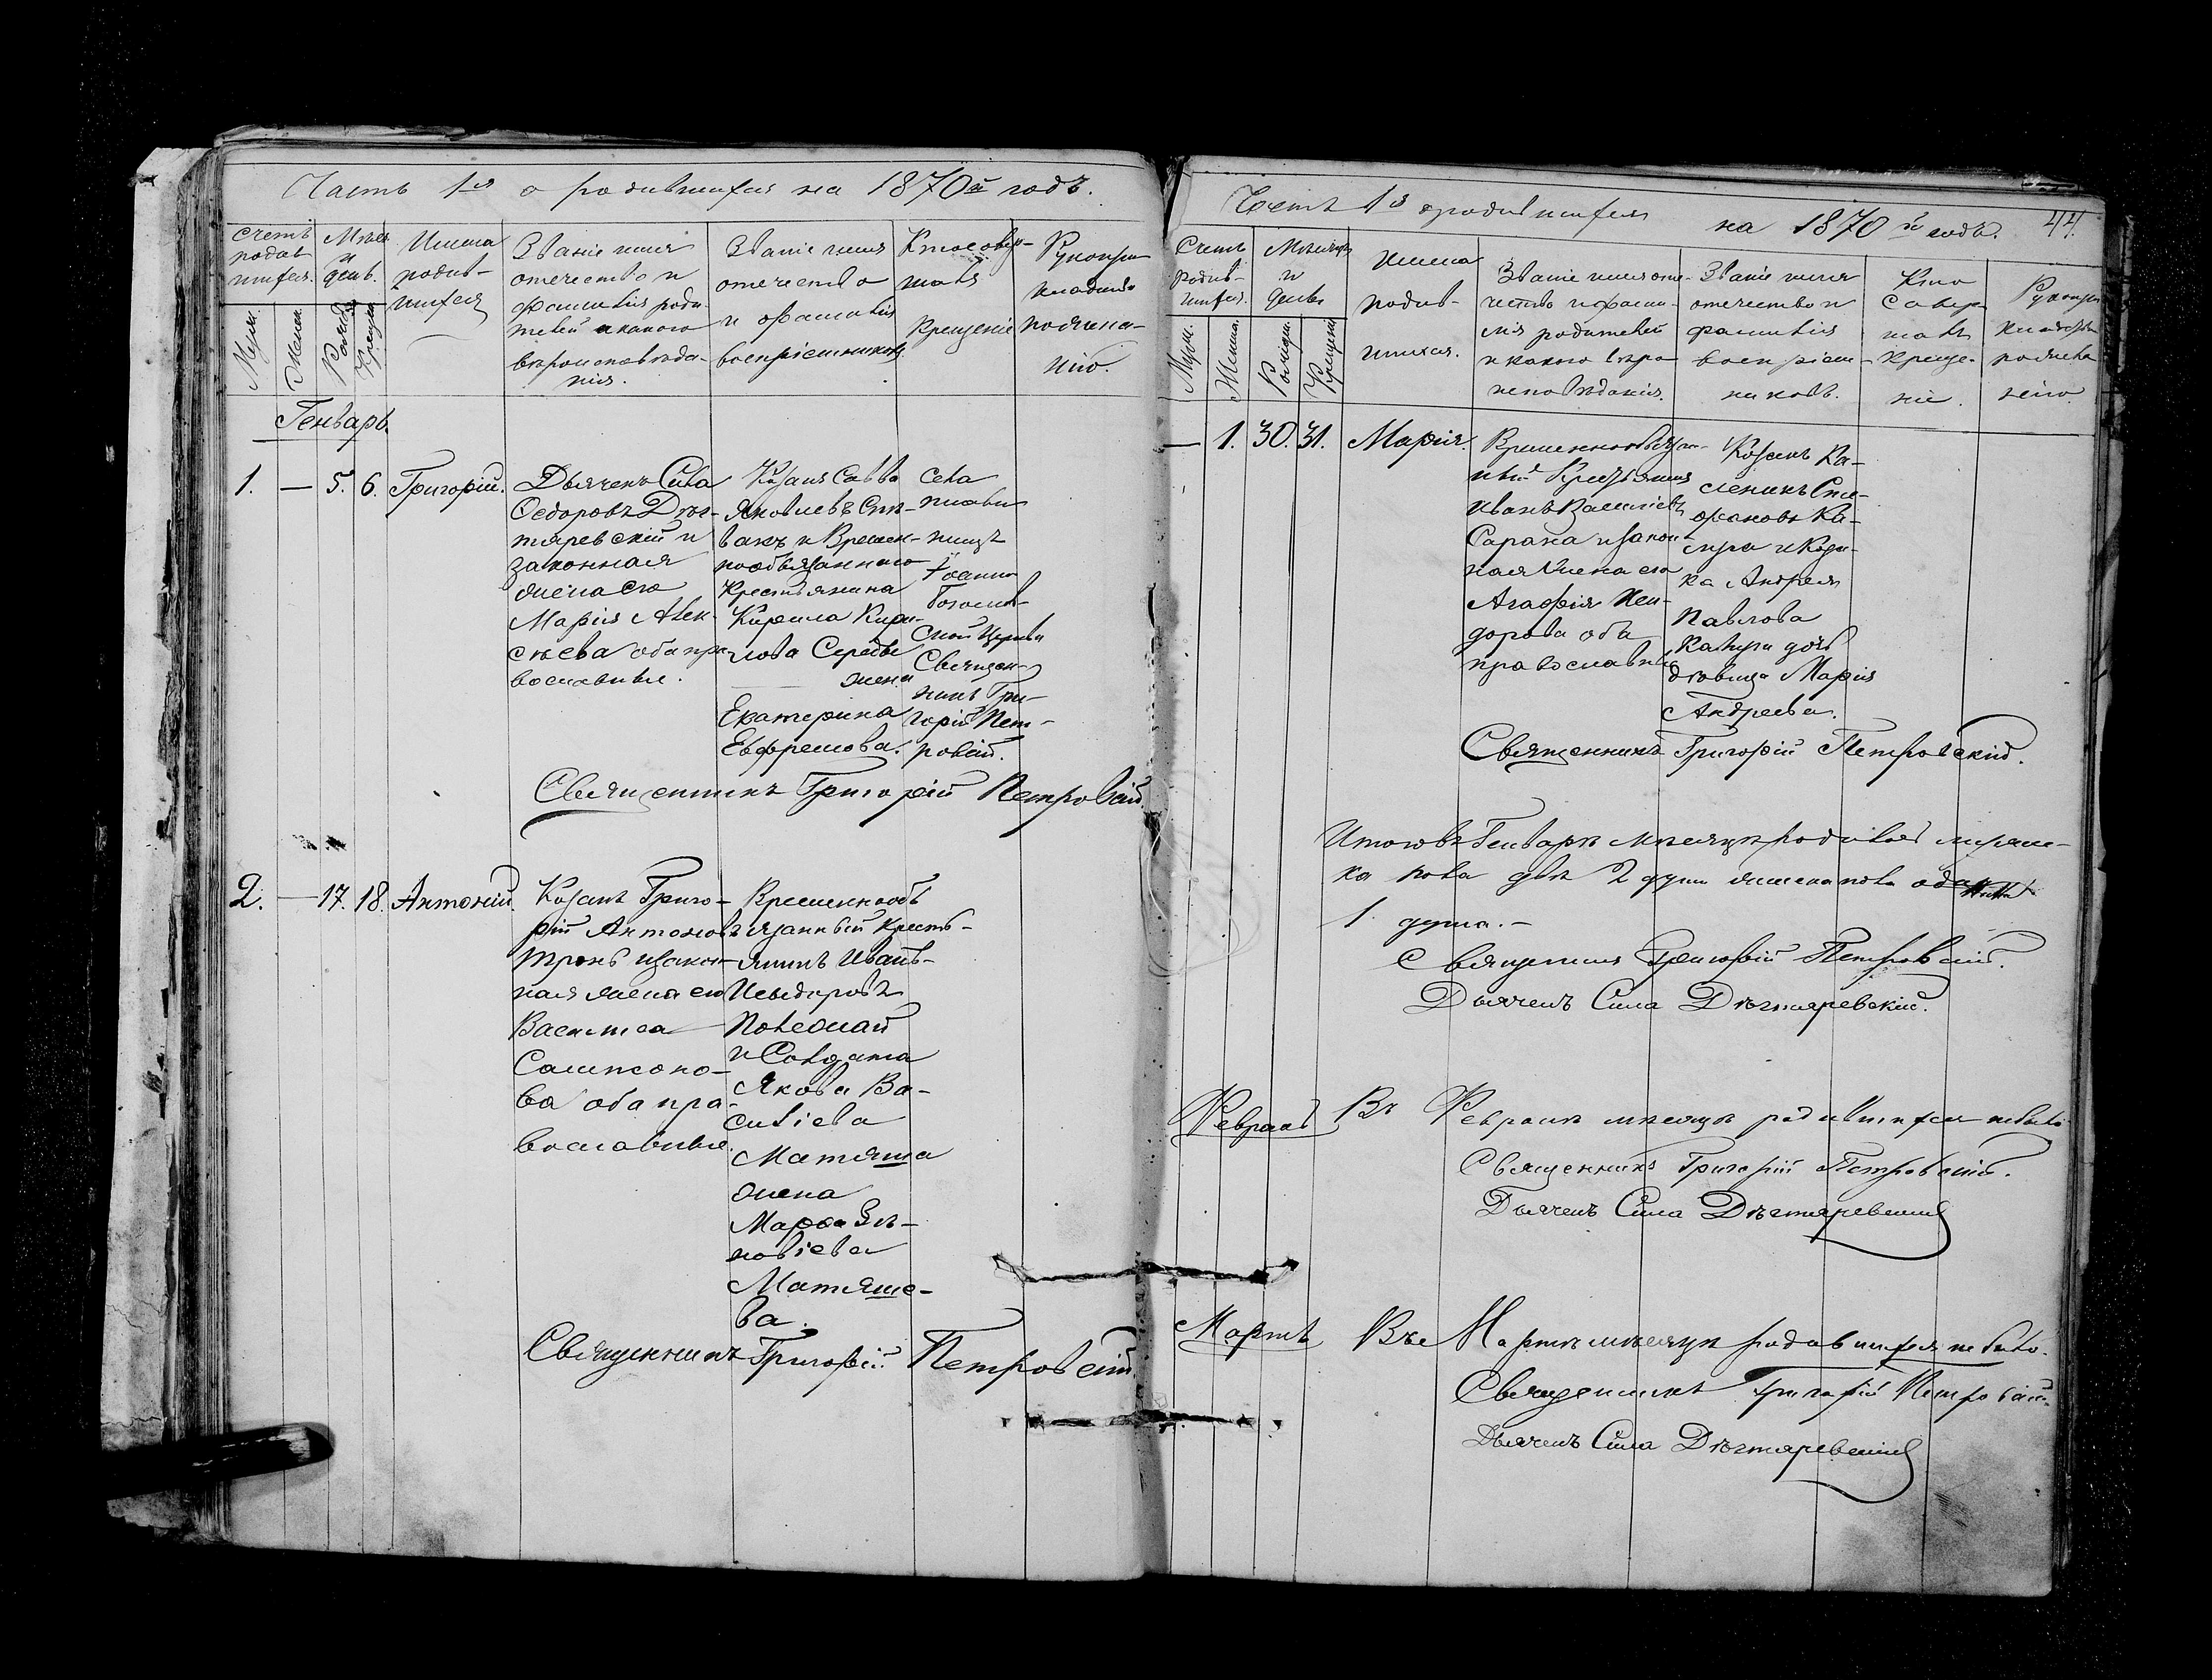 Часть 1я о родившихся на 1870й годъ.
Счетъ родив-шихся.
Муж.
Женск.
Мѣсяц. и день.
Рожд.
Крещен.
Имена
родив-
шихся
Званіе имя
отечество и
фамилія роди-
телей и какого
вѣроисповѣда-
нія.
Званіе имя
отечество
и фамилія
воспріемниковъ
Кто совер-
шалъ
крещеніе
Рукопри-
кладство
по желанію.
Генварь.
1. — 5. 6. Григорій.
Дьячекъ Сила
Ѳедоровъ Дѣг-
тяревскій и
законная
жена его
Марія Алек-
сѣева оба пра-
вославные.
Козакъ Савва
Яковлевъ
и Времен-
нообязанного
крестьянина
Кирила Кири-
лова Середы
жена
Екатерина
Ефремова.
Села
Іоанно
Богослов-
ской Церкви
Священ-
никъ Гри-
горій Пет-
ровскій.
Священникъ Григорій Петровскій.
2. — 17. 18. Антоній.
Козакъ Григо-
рій Антоновъ
и закон-
ная жена его
Василиса
Самсоно-
ва оба пра-
вославные.
Временнооб-
язанный кресть-
янинъ Иванъ
и Солдата
Якова Ва-
силіева
Матяша
жена
Марфа Зѣ-
новіева
Матяше-
ва.
Священникъ Григорій Петровскій.
Часть 1я о родившихся на 1870й годъ. 44.
Счетъ
родив-
шихся.
Муж.
Женск.
Мѣсяцъ
и
день
Рожден.
Крещен.
Имена
родив-
шихся.
Званіе имя оте-
чество и фами-
лія родителей
и какого вѣро
исповѣданія.
Званіе имя
отечество и
фамилія
воспріем-
никовъ.
Кто
совер-
шалъ
креще-
ніе.
Рукопри-
кладство
по жела-
нію.
— 1. 30. 31. Марія.
Временнообяза-
ный крестьянинъ
Иванъ Василіевъ
Сарана и закон-
ная жена его
Агафія
оба
православные
Козакъ Ка-
леникъ Сте-
фановъ Ка-
и Коза-
ка Андрея
Павлова
дочь
дѣвица Марія
Андреева.
Священникъ Григорій Петровскій.
Итого въ Генварѣ мѣсяцѣ родилось мужеска
пола двѣ 2 души женска пола одна
1 душа.—
Священникъ Григорій Петровскій.
Дьячекъ Сила Дѣгтяревскій.
Февраль
Въ Февралѣ мѣсяцѣ родившихся небыло
Священникъ Григорій Петровскій.
Дьячекъ Сила Дѣгтяревскій
Мартъ
Въ Мартѣ мѣсяцѣ родившихся не было.
Священникъ Григорій Петровскій.
Дьячекъ Сила Дѣгтяревскій